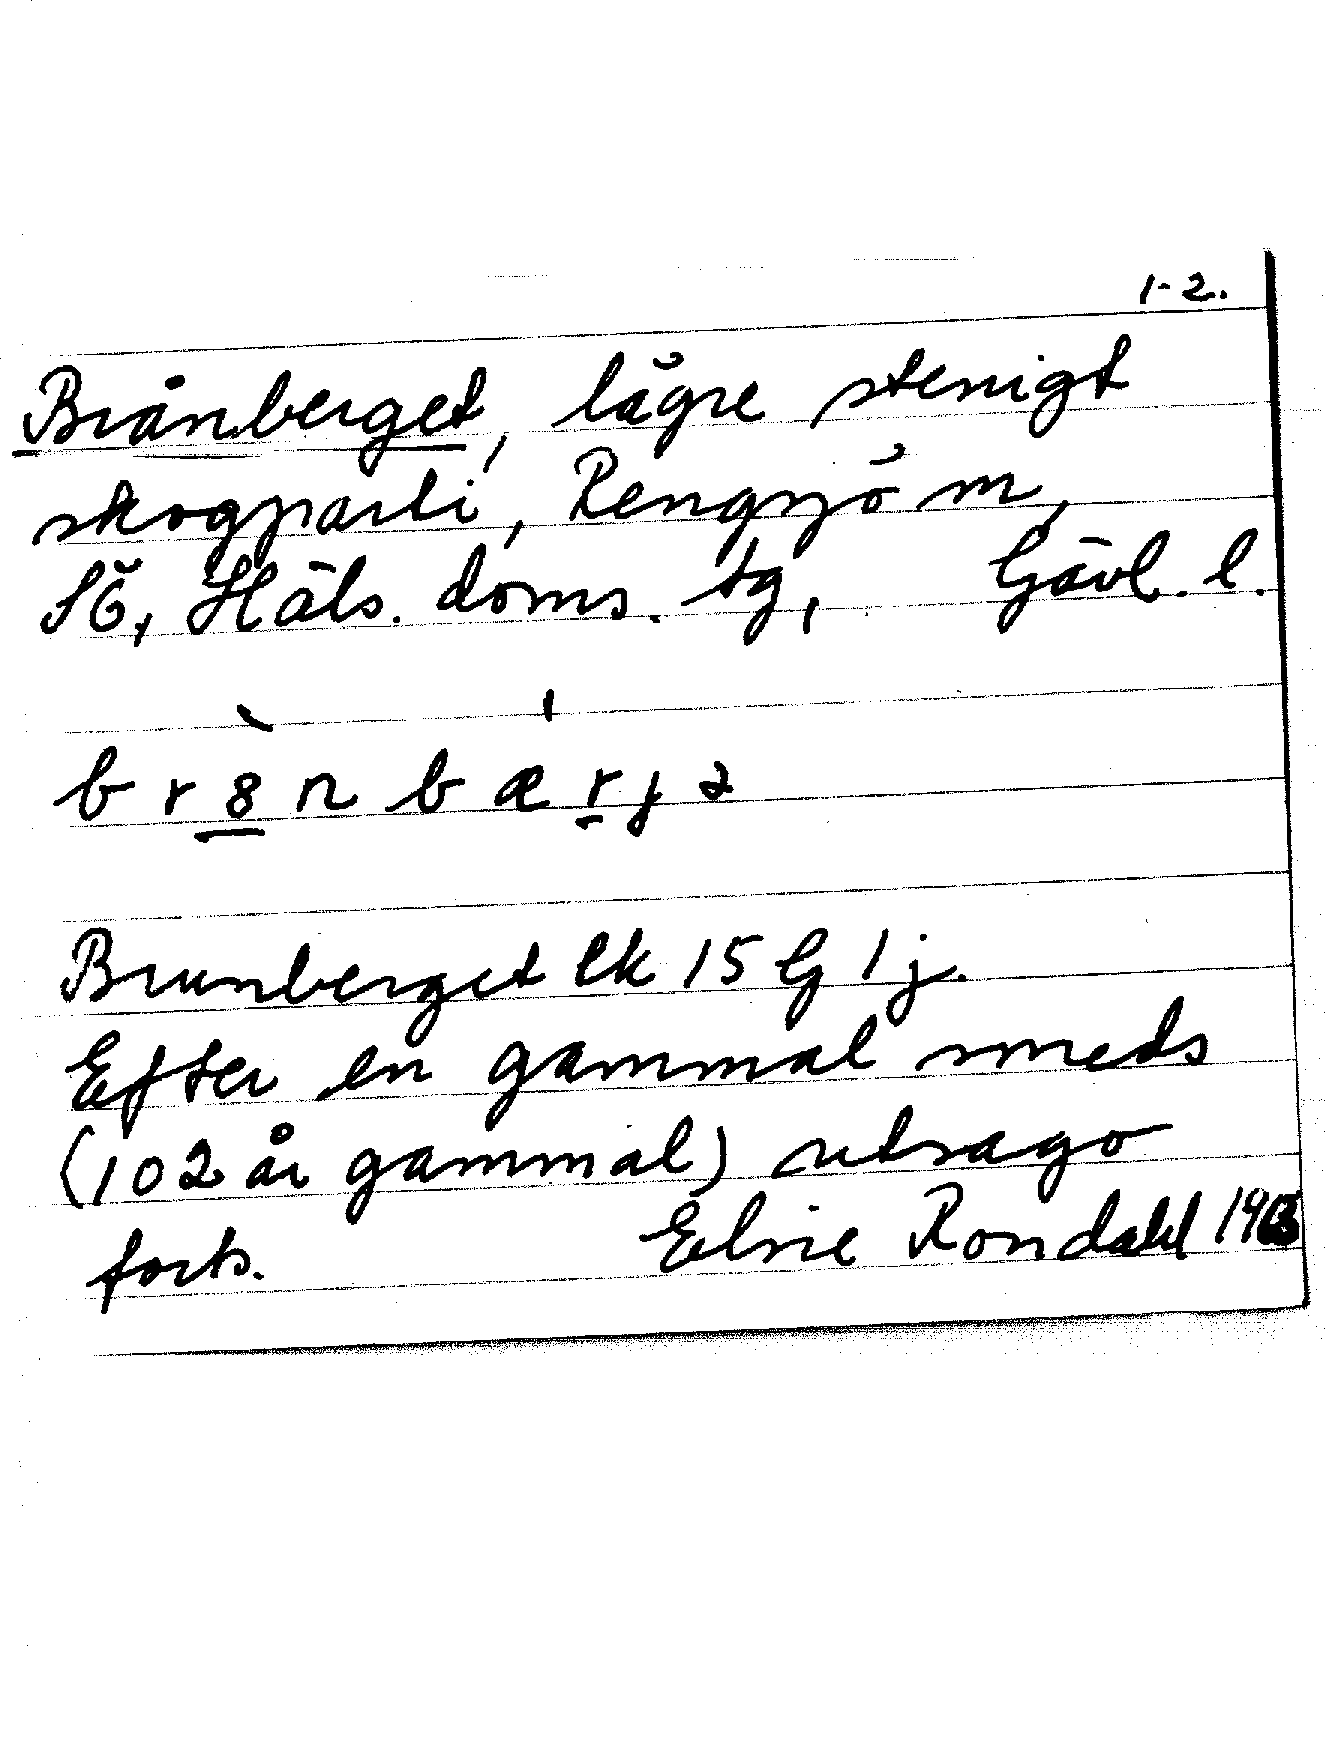 1-2.
Brånberget, lägre stenigt
skogparti, Rengsjö m,
SÖ, Häls. doms. tg, Gävl. l.
br8nbærjə
Brunberget Ek 15 G 1 j.
Efter en gammal smeds
(102 år gammal) utsago
forts. Elsie Rondahl